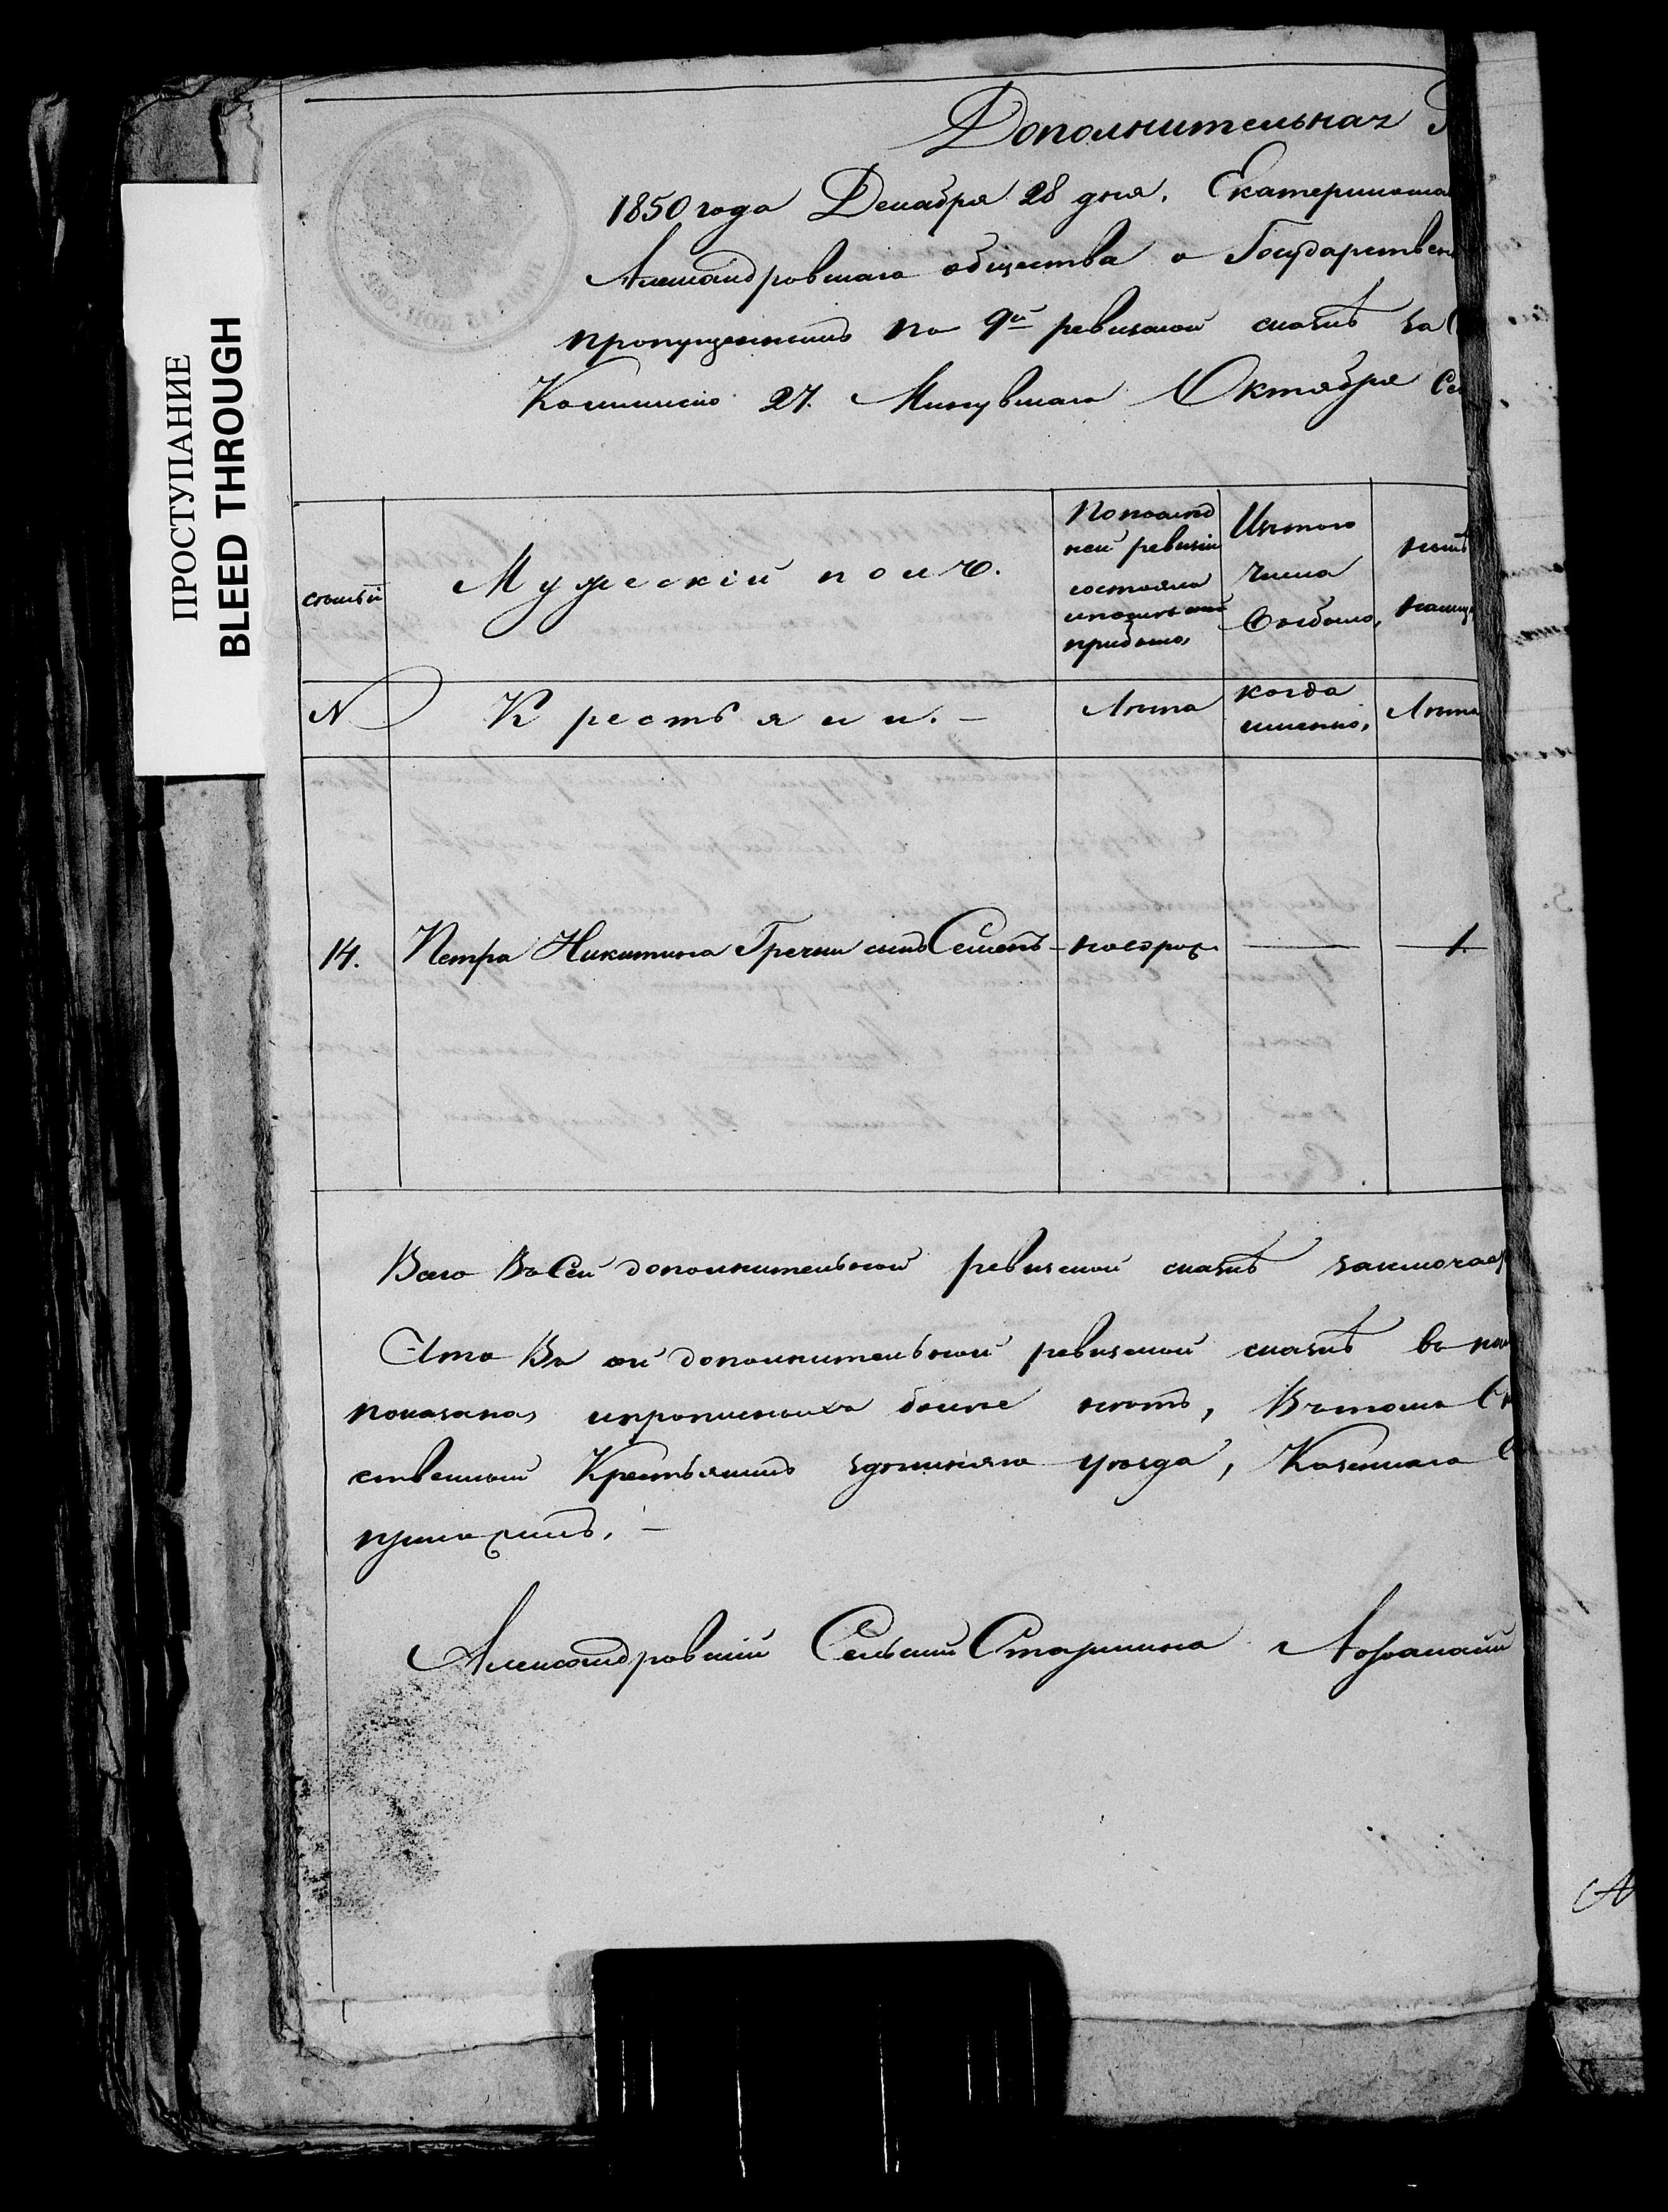 ПРОСТУПАНИЕ
BLEED THROUGH
Дополнительная
1850 года Декабря 28 дня. Екатеринослав
Александровскаго общества о Государствен
пропущенныхъ по 9й ревизской сказкѣ
Коммисіею 27. Минувшаго Октября Се
семьи
Мужескій полъ.
По послѣд
ней ревизіи
состояло
и послѣ оной
прибыло,
Изъ того
числа
выбыло,
нынѣ
налиц
N
Крестьяни. —
Лѣта
когда
именно,
Лѣта
14.
Петра Никитина Гречки сынъ Семенъ
новорож
1.
Всего Въ Сей дополнительной ревизской сказкѣ заключает
Что Въ сей дополнительной ревизской сказкѣ въ
показана, и прописныхъ более нѣтъ, Въ томъ
ственный Крестьянинъ здѣшняго уѣзда, Казеннаго
приложилъ. —
Александровскій Сельскій Старшина Афанасій